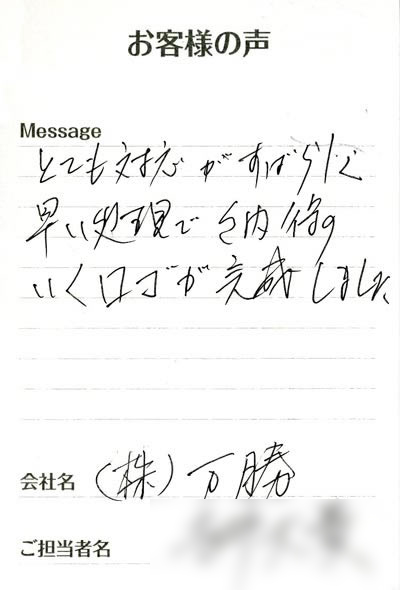 お客様の声
Message
とても対応がすばらしく
早い処理で納得の
いくロゴが完成しました
会社名 (株)万勝
ご担当者名